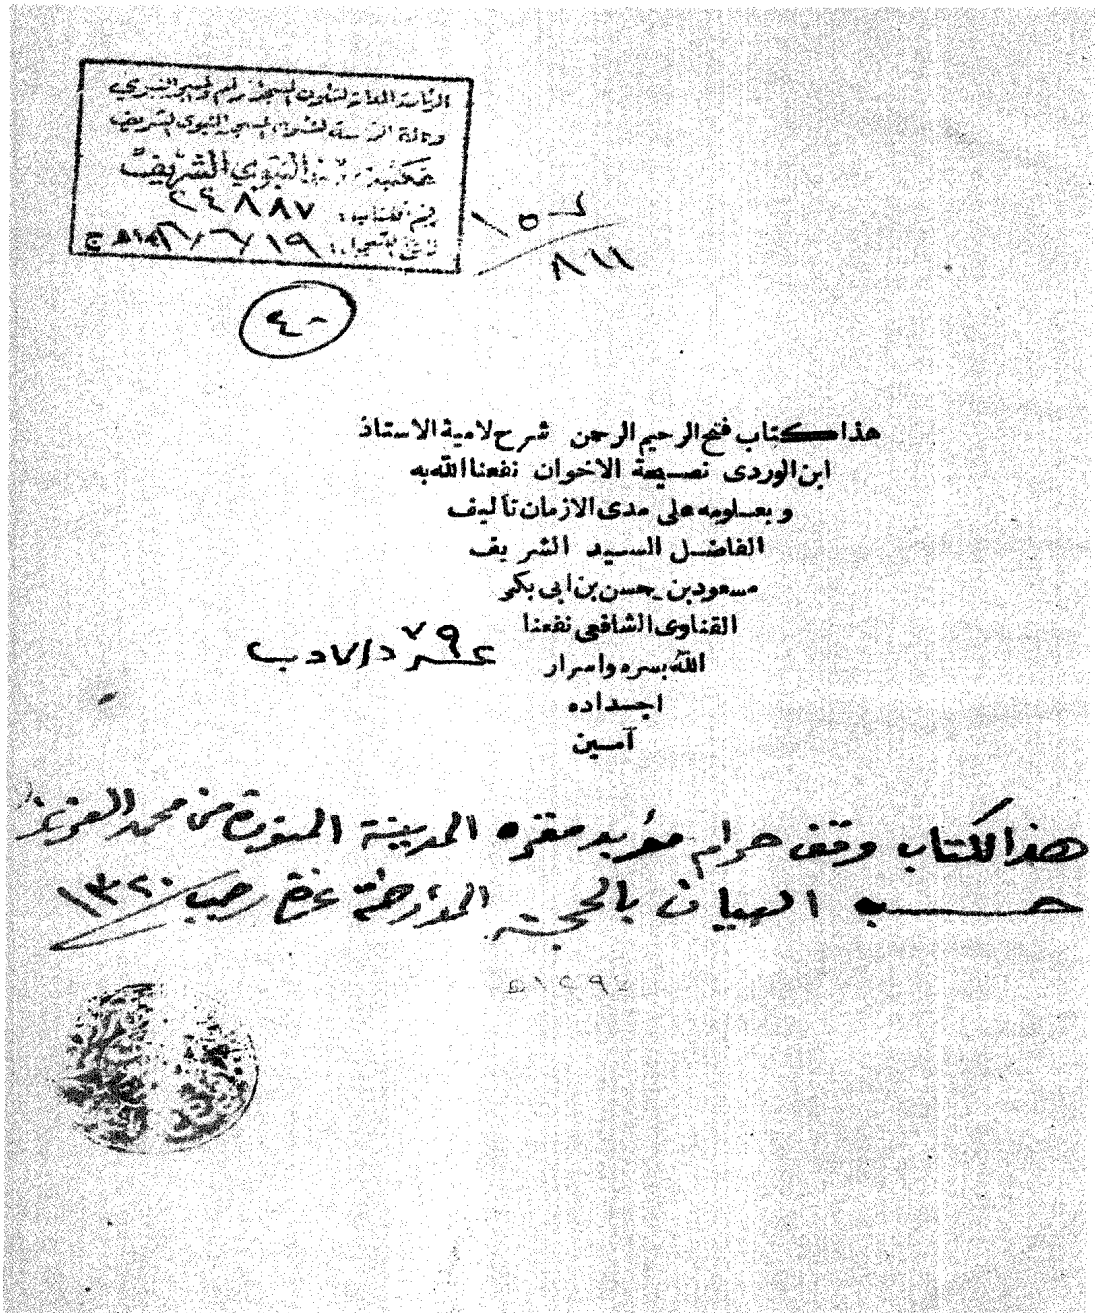 الرئاسة العامة لشئون المسجد الحرام والمسجد النبوي
وكالة الرئاسة لشئون المسجد النبوي الشريف
مكتبة المسجد النبوي الشريف
رقم الكتاب: ٢٤٨٨٧
تاريخ التسجيل: ١٩/٦/
٨١١
٤٠
هذا كتاب فتح الرحيم الرحمن شرح لامية الاستاذ
ابن الوردى نصيحة الاخوان نفعنا الله به
وبعلومه على مدى الازمان تأليف
الفاضل السيد الشريف
مسعود بن حسن بن ابى بكر
القناوى الشافعى نفعنا
الله بسره واسرار
اجداده
آمين
٧٩
هذا الكتاب وقف حرام مؤبد مقره المدينة المنورة من محمد العزيز
حسب البيان بالحجة المؤرخة غرة رجب ١٣٢٠
١٢٩٤ھ